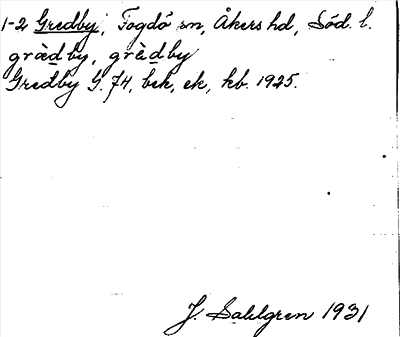 1-2 Gredby, Fogdö sn, Åkers hd, Söd. l.
gràdby, grèdby
Gredby G. 74, bek, ek, kb. 1925.
J. Sahlgren 1931